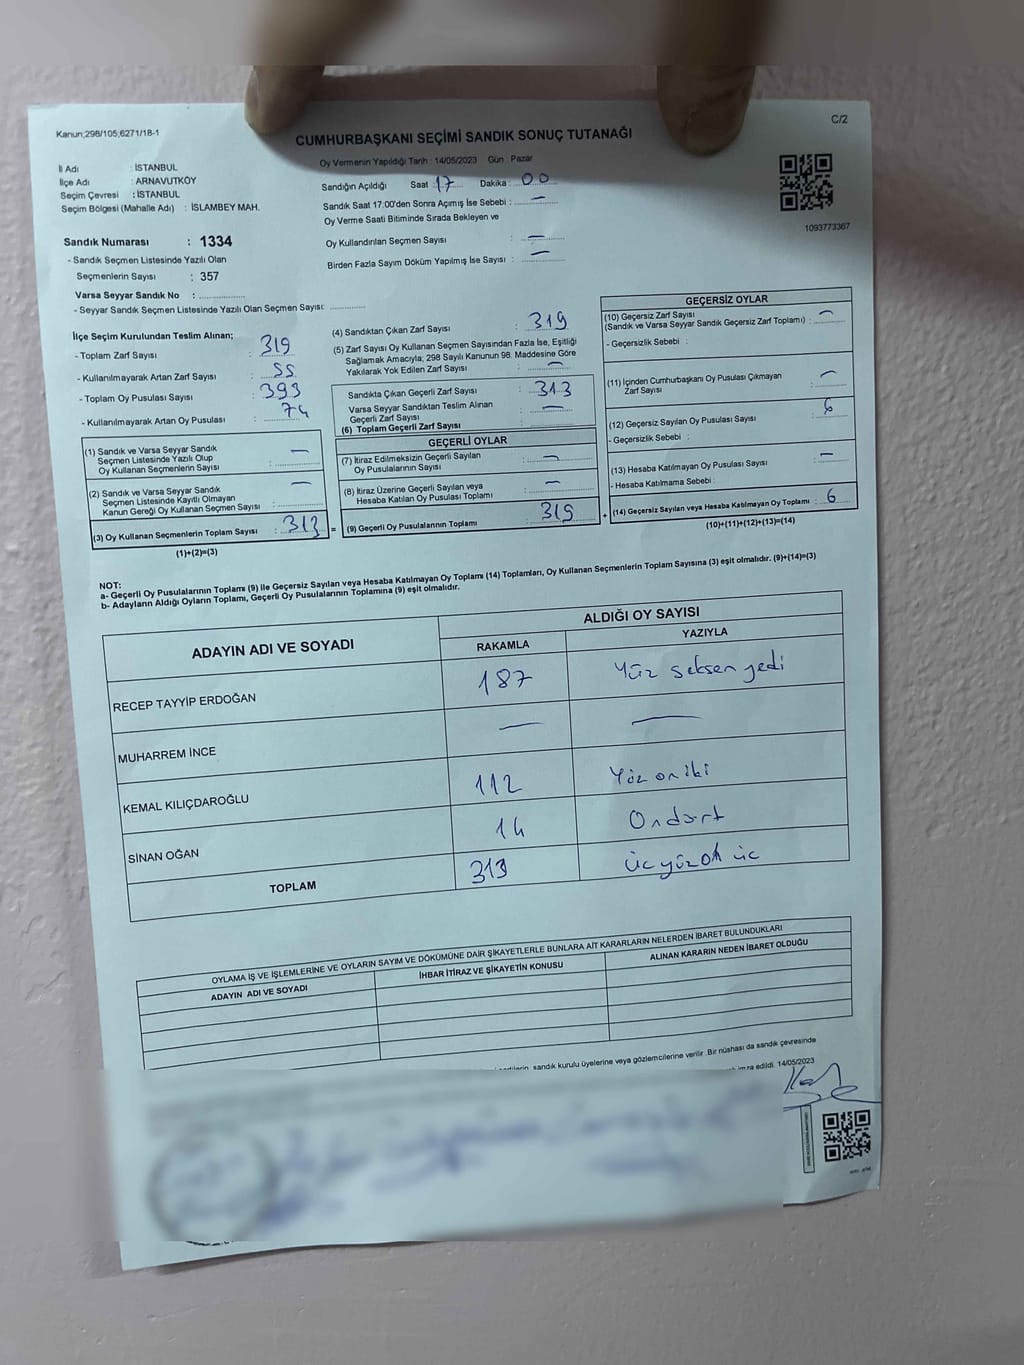 Kanun;298/105,6271/18-1
C/2
CUMHURBAŞKANI SEÇİMİ SANDIK SONUÇ TUTANAĞI
Oy Vermenin Yapıldığı Tarih : 14/05/2023 Gün : Pazar
İl Adı : İSTANBUL
İlçe Adı : ARNAVUTKÖY
Seçim Çevresi : İSTANBUL
Seçim Bölgesi (Mahalle Adı) : İSLAMBEY MAH.
Sandığın Açıldığı Saat : 17 Dakika : 00
Sandık Saat 17:00'den Sonra Açımış İse Sebebi : —
Oy Verme Saati Bitiminde Sırada Bekleyen ve
Oy Kullandırılan Seçmen Sayısı : —
Birden Fazla Sayım Döküm Yapılmış İse Sayısı : —
1093773367
Sandık Numarası : 1334
- Sandık Seçmen Listesinde Yazılı Olan
Seçmenlerin Sayısı : 357
Varsa Seyyar Sandık No :
- Seyyar Sandık Seçmen Listesinde Yazılı Olan Seçmen Sayısı:
İlçe Seçim Kurulundan Teslim Alınan;
- Toplam Zarf Sayısı : 319
- Kullanılmayarak Artan Zarf Sayısı : 55
- Toplam Oy Pusulası Sayısı : 393
- Kullanılmayarak Artan Oy Pusulası : 74
(1) Sandık ve Varsa Seyyar Sandık
Seçmen Listesinde Yazılı Olup
Oy Kullanan Seçmenlerin Sayısı : —
(2) Sandık ve Varsa Seyyar Sandık
Seçmen Listesinde Kayıtlı Olmayan
Kanun Gereği Oy Kullanan Seçmen Sayısı : —
(3) Oy Kullanan Seçmenlerin Toplam Sayısı : 313 =
(1)+(2)=(3)
(4) Sandıktan Çıkan Zarf Sayısı : 319
(5) Zarf Sayısı Oy Kullanan Seçmen Sayısından Fazla İse, Eşitliği
Sağlamak Amacıyla; 298 Sayılı Kanunun 98. Maddesine Göre
Yakılarak Yok Edilen Zarf Sayısı : —
Sandıkta Çıkan Geçerli Zarf Sayısı : 313
Varsa Seyyar Sandıktan Teslim Alınan
Geçerli Zarf Sayısı : —
(6) Toplam Geçerli Zarf Sayısı :
GEÇERLİ OYLAR
(7) İtiraz Edilmeksizin Geçerli Sayılan
Oy Pusulalarının Sayısı : —
(8) İtiraz Üzerine Geçerli Sayılan veya
Hesaba Katılan Oy Pusulası Toplamı : —
(9) Geçerli Oy Pusulalarının Toplamı : 319 +
GEÇERSİZ OYLAR
(10) Geçersiz Zarf Sayısı
(Sandık ve Varsa Seyyar Sandık Geçersiz Zarf Toplamı) : —
- Geçersizlik Sebebi :
(11) İçinden Cumhurbaşkanı Oy Pusulası Çıkmayan
Zarf Sayısı : —
(12) Geçersiz Sayılan Oy Pusulası Sayısı : 6
- Geçersizlik Sebebi :
(13) Hesaba Katılmayan Oy Pusulası Sayısı : —
- Hesaba Katılmama Sebebi :
(14) Geçersiz Sayılan veya Hesaba Katılmayan Oy Toplamı : 6
(10)+(11)+(12)+(13)=(14)
NOT:
a- Geçerli Oy Pusulalarının Toplamı (9) ile Geçersiz Sayılan veya Hesaba Katılmayan Oy Toplamı (14) Toplamları, Oy Kullanan Seçmenlerin Toplam Sayısına (3) eşit olmalıdır. (9)+(14)=(3)
b- Adayların Aldığı Oyların Toplamı, Geçerli Oy Pusulalarının Toplamına (9) eşit olmalıdır.
ADAYIN ADI VE SOYADI
ALDIĞI OY SAYISI
RAKAMLA YAZIYLA
RECEP TAYYİP ERDOĞAN 187 Yüz seksen yedi
MUHARREM İNCE — —
KEMAL KILIÇDAROĞLU 112 Yüz on iki
SİNAN OĞAN 14 Ondört
TOPLAM 313 üç yüz on üç
OYLAMA İŞ VE İŞLEMLERİNE VE OYLARIN SAYIM VE DÖKÜMÜNE DAİR ŞİKAYETLERLE BUNLARA AİT KARARLARIN NELERDEN İBARET BULUNDUKLARI
ADAYIN ADI VE SOYADI İHBAR İTİRAZ VE ŞİKAYETİN KONUSU ALINAN KARARIN NEDEN İBARET OLDUĞU
sandık kurulu üyelerine veya gözlemcilerine verilir. Bir nüshası da sandık çevresinde
imza edildi. 14/05/2023